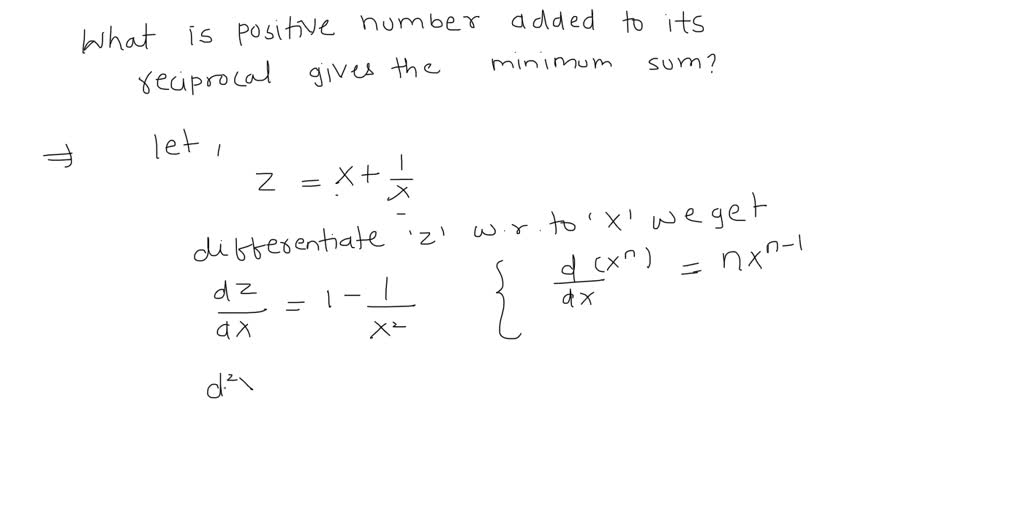 What is positive number added to its
reciprocal gives the minimum sum?
⇒ let,
z = x + 1/x
differentiate 'z' w.r.to 'x' we get
dz/dx = 1 - 1/x² { d/dx (xⁿ) = nxⁿ⁻¹
d²